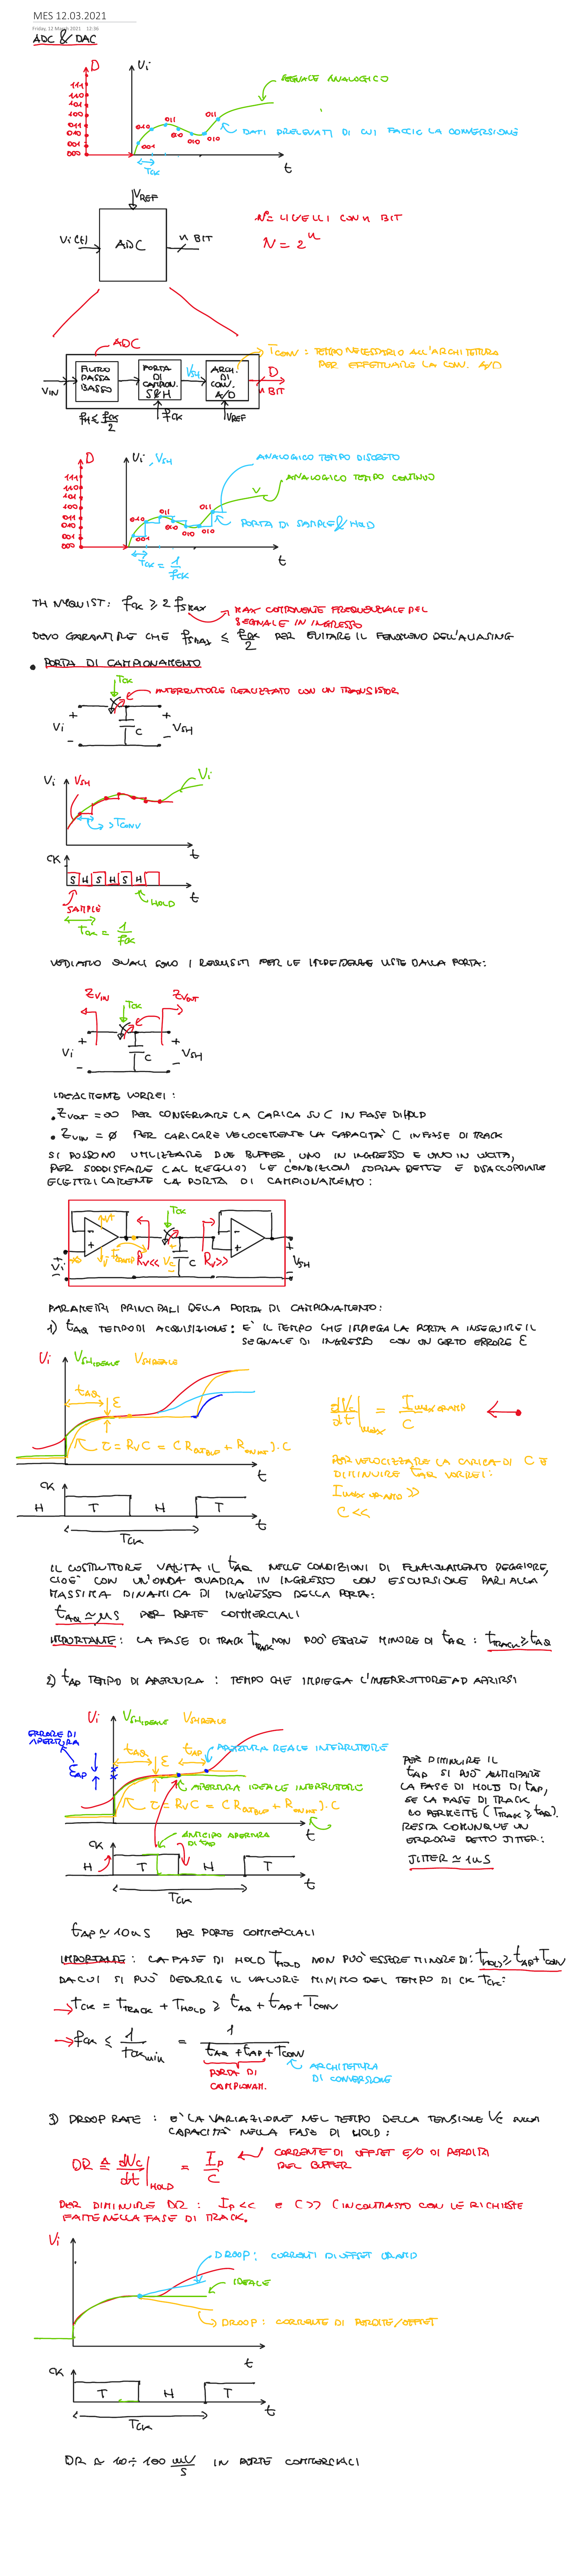 MES 12.03.2021
Friday, 12 March 2021 12:36
ADC & DAC
D
Vi
SEGNALE ANALOGICO
111
110
101
100
011
010
001
000
010
011
010
010
010
011
001
DATI PRELEVATI DI CUI FACCIO LA CONVERSIONE
TCK
t
VREF
Vi(t)
ADC
n BIT
N = LIVELLI CON n BIT
N = 2^n
ADC
TCONV : TEMPO NECESSARIO ALL'ARCHITETTURA
PER EFFETTUARE LA CONV. A/D
VIN
FILTRO
PASSA
BASSO
PORTA
DI
CAMPION.
S&H
VSH
ARCH.
DI
CONV.
A/D
D
n BIT
fH ≤ fCK/2
fCK
VREF
D
Vi , VSH
ANALOGICO TEMPO DISCRETO
ANALOGICO TEMPO CONTINUO
111
110
101
100
011
010
001
000
010
011
010
010
010
011
001
PORTA DI SAMPLE & HOLD
TCK = 1/fCK
t
TH NYQUIST: fCK ≥ 2 fSMAX
MAX COMPONENTE FREQUENZIALE DEL
SEGNALE IN INGRESSO
DEVO GARANTIRE CHE fSMAX ≤ fCK/2 PER EVITARE IL FENOMENO DELL'ALIASING
• PORTA DI CAMPIONAMENTO
TCK
INTERRUTTORE REALIZZATO CON UN TRANSISTOR
+ Vi -
C
+ VSH -
Vi
VSH
Vi
TCONV
t
CK
S H S H S H
t
SAMPLE
HOLD
TCK = 1/fCK
VEDIAMO QUALI SONO I REQUISITI PER LE IMPEDENZE VISTE DALLA PORTA:
ZVIN
TCK
ZVOUT
+ Vi -
C
+ VSH -
IDEALMENTE VORREI:
• ZVOUT = ∞ PER CONSERVARE LA CARICA SU C IN FASE DI HOLD
• ZVIN = 0 PER CARICARE VELOCEMENTE LA CAPACITÀ C IN FASE DI TRACK
SI POSSONO UTILIZZARE DUE BUFFER, UNO IN INGRESSO E UNO IN USCITA,
PER SODDISFARE (AL MEGLIO) LE CONDIZIONI SOPRA DETTE E DISACCOPPIARE
ELETTRICAMENTE LA PORTA DI CAMPIONAMENTO:
TCK
Vi
RV<<
VC
C
RV>>
VSH
PARAMETRI PRINCIPALI DELLA PORTA DI CAMPIONAMENTO:
1) tAQ TEMPO DI ACQUISIZIONE: E' IL TEMPO CHE IMPIEGA LA PORTA A INSEGUIRE IL
SEGNALE DI INGRESSO CON UN CERTO ERRORE ε
Vi VSH IDEALE VSH REALE
tAQ
ε
dVC/dt |MAX = IMAX OPAMP / C
t
PER VELOCIZZARE LA CARICA DI C E
DIMINUIRE tAQ VORREI:
IMAX OPAMP >>
C <<
CK
H T H T
t
TCK
IL COSTRUTTORE VALUTA IL tAQ NELLE CONDIZIONI DI FUNZIONAMENTO PEGGIORE,
CIOE' CON UN'ONDA QUADRA IN INGRESSO CON ESCURSIONE PARI ALLA
MASSIMA DINAMICA DI INGRESSO DELLA PORTA:
tAQ ≃ μS PER PORTE COMMERCIALI
IMPORTANTE: LA FASE DI TRACK TTRACK NON PUO' ESSERE MINORE DI tAQ : tTRACK ≥ tAQ
2) tAP TEMPO DI APERTURA : TEMPO CHE IMPIEGA L'INTERRUTTORE AD APRIRSI
Vi VSH IDEALE VSH REALE
ERRORE DI
APERTURA
εAP
tAQ
ε
tAP
APERTURA REALE INTERRUTTORE
APERTURA IDEALE INTERRUTTORE
t
ANTICIPO APERTURA
DI tAP
PER DIMINUIRE IL
tAP SI PUO' ANTICIPARE
LA FASE DI HOLD DI tAP,
SE LA FASE DI TRACK
LO PERMETTE (TTRACK ≥ tAQ).
RESTA COMUNQUE UN
ERRORE DETTO JITTER:
JITTER ≃ 1nS
CK
H T H T
t
TCK
tAP ≃ 10nS PER PORTE COMMERCIALI
IMPORTANTE: LA FASE DI HOLD THOLD NON PUO' ESSERE MINORE DI: tHOLD ≥ tAP + TCONV
DA CUI SI PUO' DEDURRE IL VALORE MINIMO DEL TEMPO DI CK TCK:
→ TCK = TTRACK + THOLD ≥ tAQ + tAP + TCONV
→ fCK ≤ 1/TCKmin = 1/(tAQ + tAP + TCONV)
PORTA DI
CAMPIONAM.
ARCHITETTURA
DI CONVERSIONE
3) DROOP RATE : E' LA VARIAZIONE NEL TEMPO DELLA TENSIONE VC SULLA
CAPACITÀ NELLA FASE DI HOLD:
DR ≜ dVC/dt |HOLD = IP/C
CORRENTE DI OFFSET E/O DI PERDITA
DEL BUFFER
PER DIMINUIRE DR : IP << E C >> (IN CONTRASTO CON LE RICHIESTE
FATTE NELLA FASE DI TRACK.
Vi
DROOP: CORRENTI DI OFFSET OPAMP
IDEALE
DROOP: CORRENTE DI PERDITE/OFFSET
t
CK
T H T
t
TCK
DR ≃ 10÷100 mV/S IN PORTE COMMERCIALI